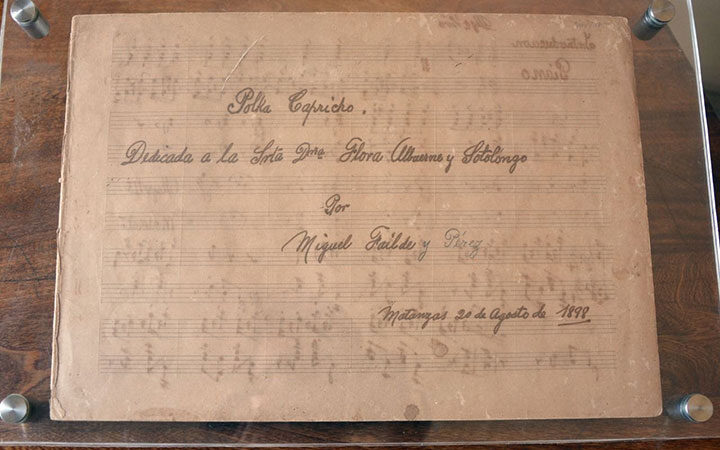 Introduccion
Piano
Polka Capricho.
Dedicada a la Srta Dña Flora Albuerne y Sotolongo
Por
Miguel Failde y Pérez
Matanzas 20 de Agosto de 1898